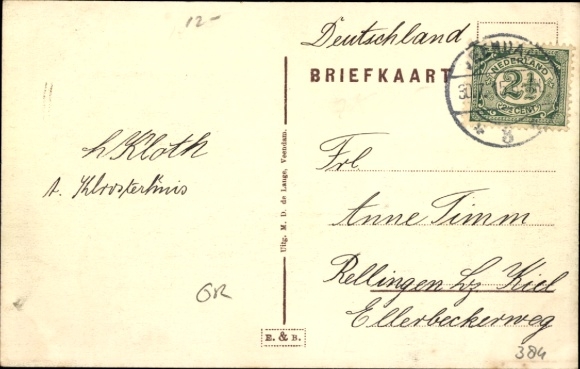 12-
Deutschland
BRIEFKAART
VEENDAM
30
8
NEDERLAND
2½
CENT
h Kloth
t. Kloosterhuis
Uitg. M. D. de Lange, Veendam.
Frl
Anne Timm
Rellingen bz Kiel
Ellerbeckerweg
GR
B. & B.
384